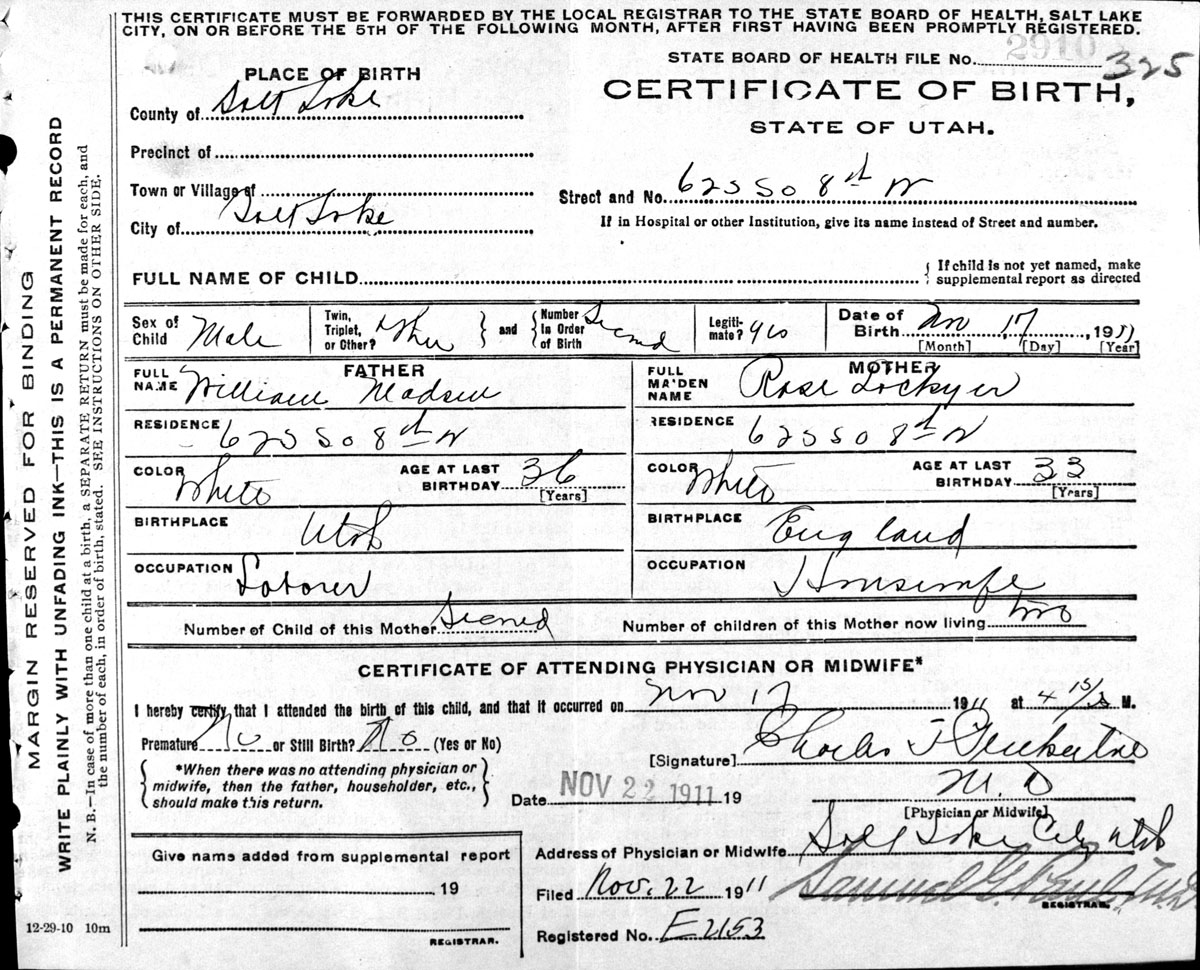 THIS CERTIFICATE MUST BE FORWARDED BY THE LOCAL REGISTRAR TO THE STATE BOARD OF HEALTH, SALT LAKE
CITY, ON OR BEFORE THE 5TH OF THE FOLLOWING MONTH, AFTER FIRST HAVING BEEN PROMPTLY REGISTERED.
2910
STATE BOARD OF HEALTH FILE No. 325
PLACE OF BIRTH
CERTIFICATE OF BIRTH,
County of Salt Lake
STATE OF UTAH.
Precinct of
Town or Village of
Street and No. 625 So 8th W
City of Salt Lake
If in Hospital or other Institution, give its name instead of Street and number.
FULL NAME OF CHILD
{ If child is not yet named, make
supplemental report as directed
Sex of Child Male
Twin, Triplet, or Other? other } and { Number In Order of Birth Second
Legiti-mate? yes
Date of Birth Nov 17, 1911
[Month] [Day] [Year]
FATHER
FULL NAME William Madsen
MOTHER
FULL MAIDEN NAME Rose Lockyer
RESIDENCE 625 So 8th W
RESIDENCE 625 So 8th W
COLOR White
AGE AT LAST BIRTHDAY 36 [Years]
COLOR White
AGE AT LAST BIRTHDAY 33 [Years]
BIRTHPLACE Utah
BIRTHPLACE England
OCCUPATION Laborer
OCCUPATION Housewife
Number of Child of this Mother Second
Number of children of this Mother now living two
CERTIFICATE OF ATTENDING PHYSICIAN OR MIDWIFE*
I hereby certify that I attended the birth of this child, and that it occurred on Nov 17 1911 at 4 15/ M.
Premature No or Still Birth? No (Yes or No)
[Signature] Charles F
*When there was no attending physician or
midwife, then the father, householder, etc.,
should make this return.
Date NOV 22 1911 19
M. D
[Physician or Midwife]
Give name added from supplemental report
Address of Physician or Midwife Salt Lake City Utah
19
Filed Nov. 22 1911 Samuel G. Paul, M.D.
REGISTRAR.
12-29-10 10m
REGISTRAR.
Registered No. E2153
MARGIN RESERVED FOR BINDING
WRITE PLAINLY WITH UNFADING INK—THIS IS A PERMANENT RECORD
N. B.—In case of more than one child at a birth, a SEPARATE RETURN must be made for each, and
the number of each, in order of birth, stated. SEE INSTRUCTIONS ON OTHER SIDE.